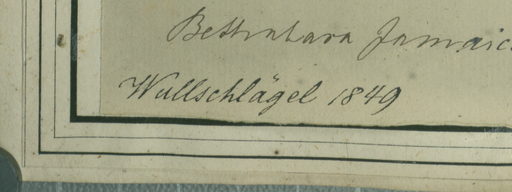 Bethabara Jamaic
Wullschlägel 1849